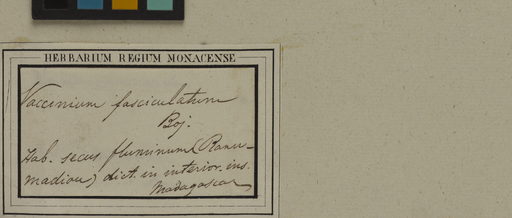 HERBARIUM REGIUM MONACENSE
Vaccinium fasciculatum
Boj.
Hab. secus fluminum (Ranu-
madiou) dict. in interior. ins.
Madagascar